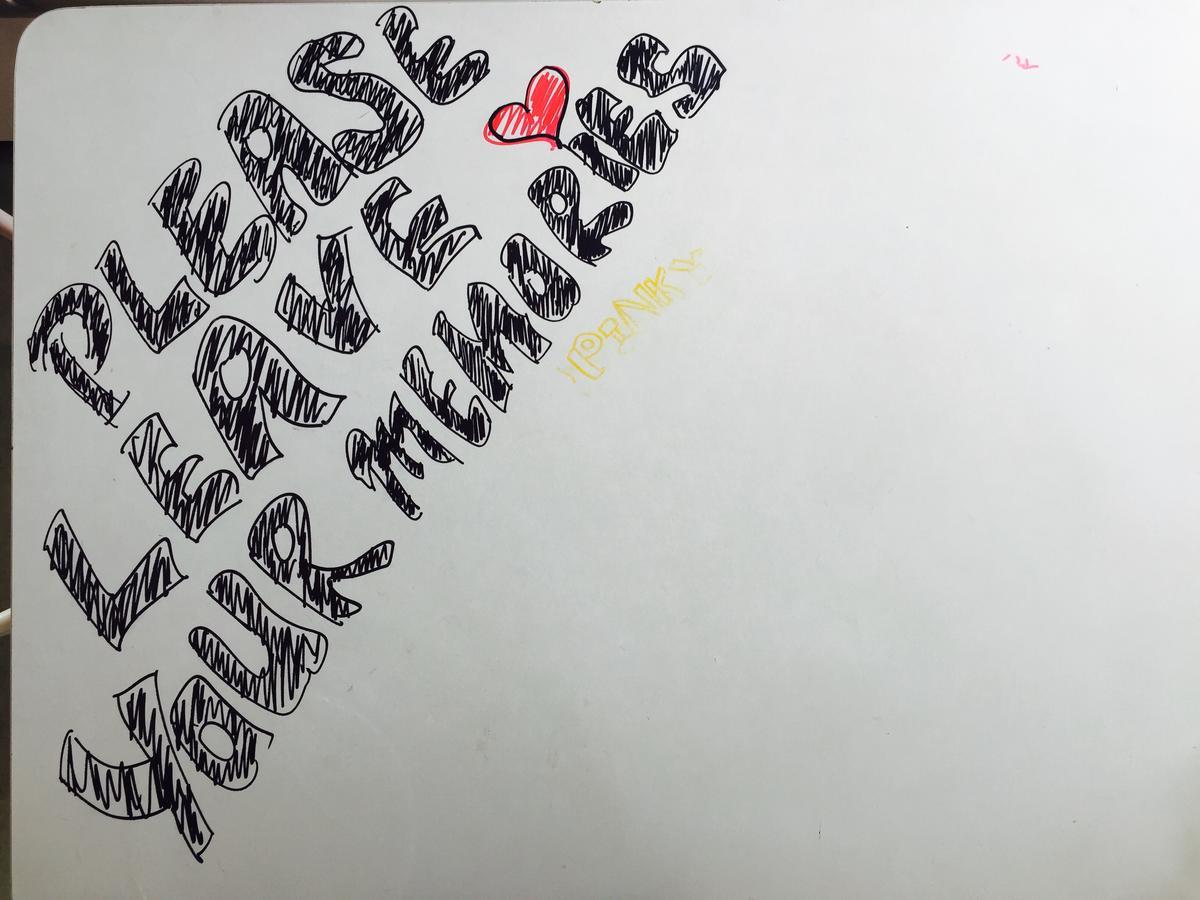 PLEASE
LEAVE
YOUR MEMORIES
PINKY